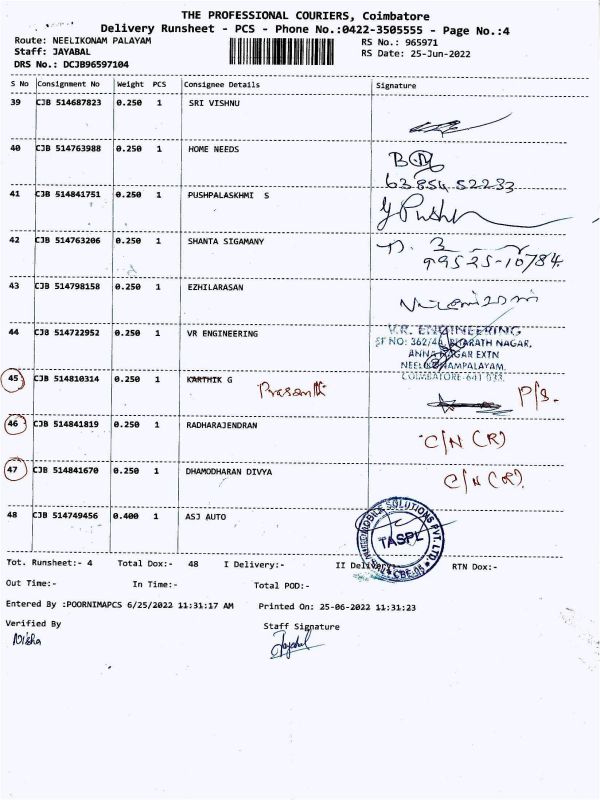 THE PROFESSIONAL COURIERS, Coimbatore
Delivery Runsheet - PCS - Phone No.:0422-3505555 - Page No.:4
Route: NEELIKONAM PALAYAM
RS No.: 965971
Staff: JAYABAL
RS Date: 25-Jun-2022
DRS No.: DCJB96597104
S No Consignment No Weight PCS Consignee Details Signature
39 CJB 514687823 0.250 1 SRI VISHNU
40 CJB 514763988 0.250 1 HOME NEEDS
63854 52233
41 CJB 514841751 0.250 1 PUSHPALASKHMI S
42 CJB 514763206 0.250 1 SHANTA SIGAMANY
99525-10784.
43 CJB 514798158 0.250 1 EZHILARASAN
44 CJB 514722952 0.250 1 VR ENGINEERING
V.R. ENGINEERING
SF NO: 362/4A, BHARATH NAGAR,
ANNA NAGAR EXTN
NEELIKONAMPALAYAM,
COIMBATORE-641 033.
45 CJB 514810314 0.250 1 KARTHIK G Prasanth P/S.
46 CJB 514841819 0.250 1 RADHARAJENDRAN C/N (R)
47 CJB 514841670 0.250 1 DHAMODHARAN DIVYA C/N (R).
48 CJB 514749456 0.400 1 ASJ AUTO
MOBILE SOLUTIONS PVT. LTD.
TASPL
CBE-05
Tot. Runsheet:- 4 Total Dox:- 48 I Delivery:- II Delivery:- RTN Dox:-
Out Time:- In Time:- Total POD:-
Entered By :POORNIMAPCS 6/25/2022 11:31:17 AM Printed On: 25-06-2022 11:31:23
Verified By Staff Signature
Nisha Jayabal